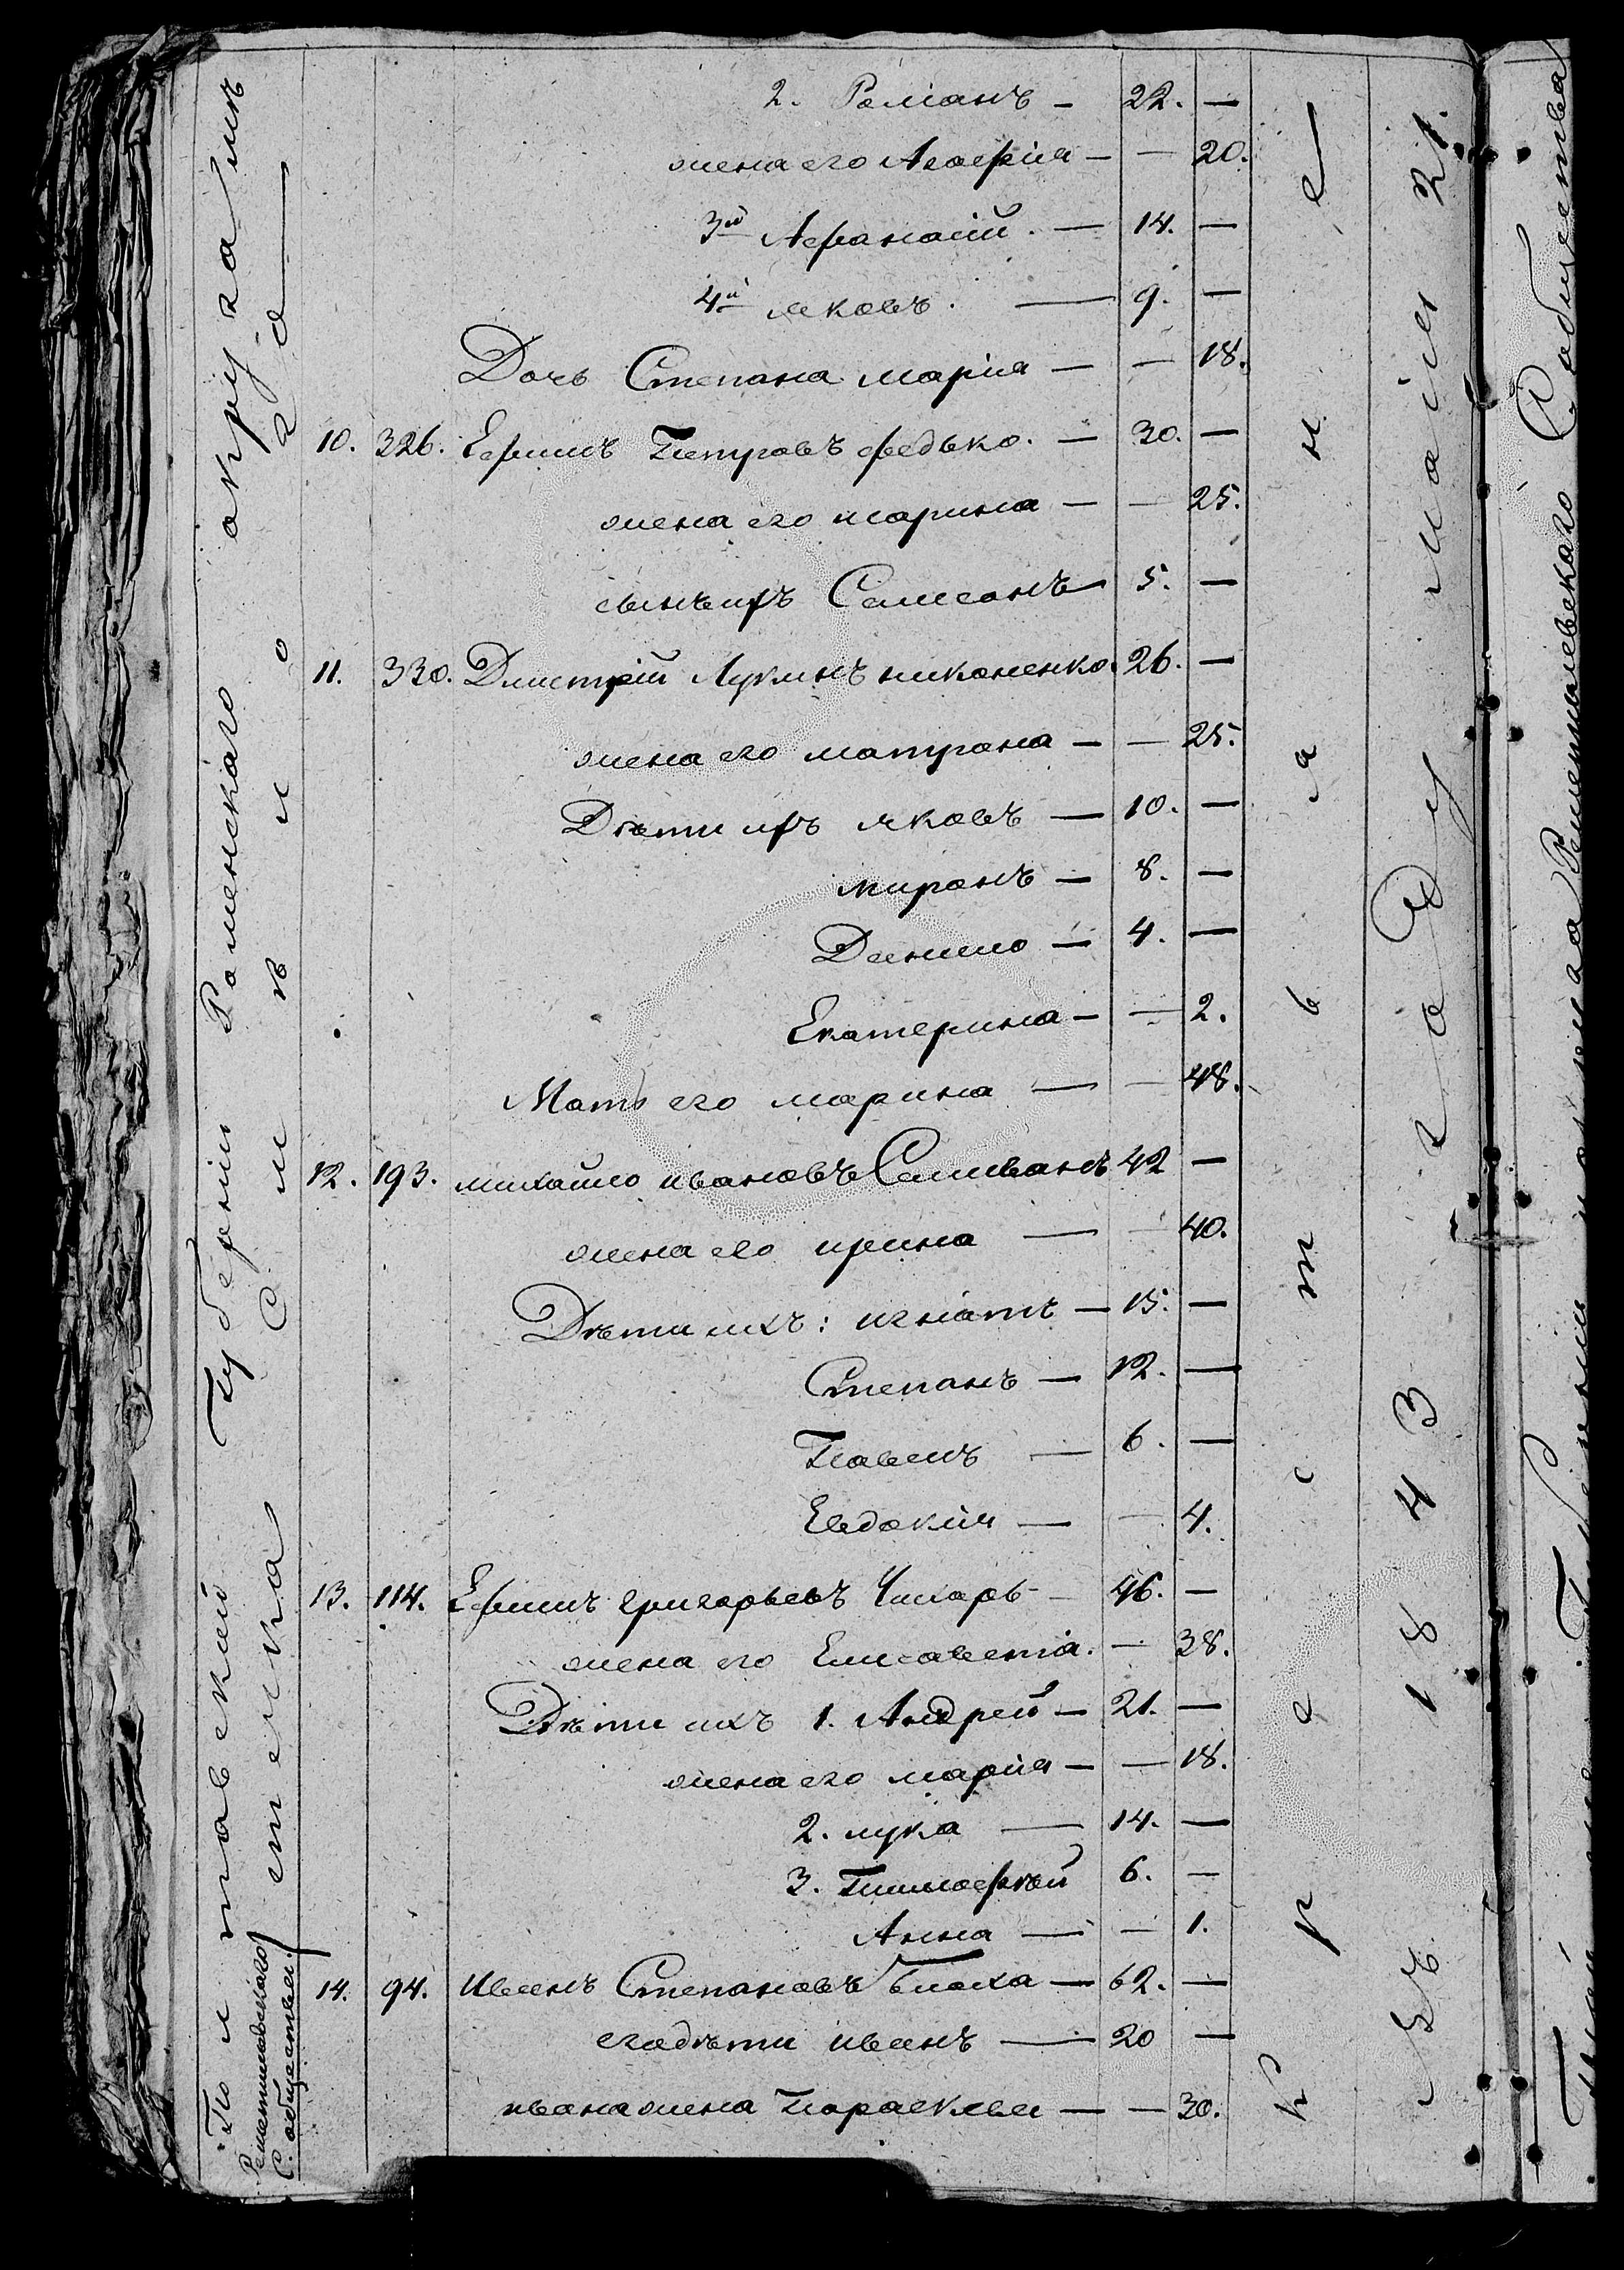 Полтавской Губерніи Роменскаго округа Лип
енска Смѣлого
Решетиловскаго
С. общества.
2. Романъ — 22. —
жена его Агафия — — 20.
3й Афанасій. — 14. —
4й яковъ. — 9. —
Дочь Степана мария — — 18.
10. 326. Ефимъ Петровъ федько. — 30. —
жена его марина — — 25.
сынъ ихъ Самсонъ — 5. —
11. 330. Дмитрій Лукинъ никоненко. 26. —
жена его матрона — — 25.
Дѣти ихъ яковъ — 10. —
миронъ — 8. —
Данило — 4. —
Екатерина — — 2.
Мать его марина — — 48.
12. 193. михайло ивановъ Селиванъ 42 —
жена его ирина — — 40.
Дѣти ихъ: игнатъ — 15. —
Степанъ — 12. —
Павелъ — 6. —
Евдокия — — 4.
13. 114. Ефимъ григорьевъ Чихарь — 46. —
жена его Елисавета. — 38.
Дѣти ихъ 1. Андрей — 21. —
жена его мария — — 18.
2. лука — 14. —
3. Тимофѣй 6. —
Анна — — 1.
14. 94. Иванъ Степановъ Блоха — 62. —
его дѣти иванъ — 20 —
ивана жена Параскева — — 30.
Крестьяне
1843 Году маія 21.